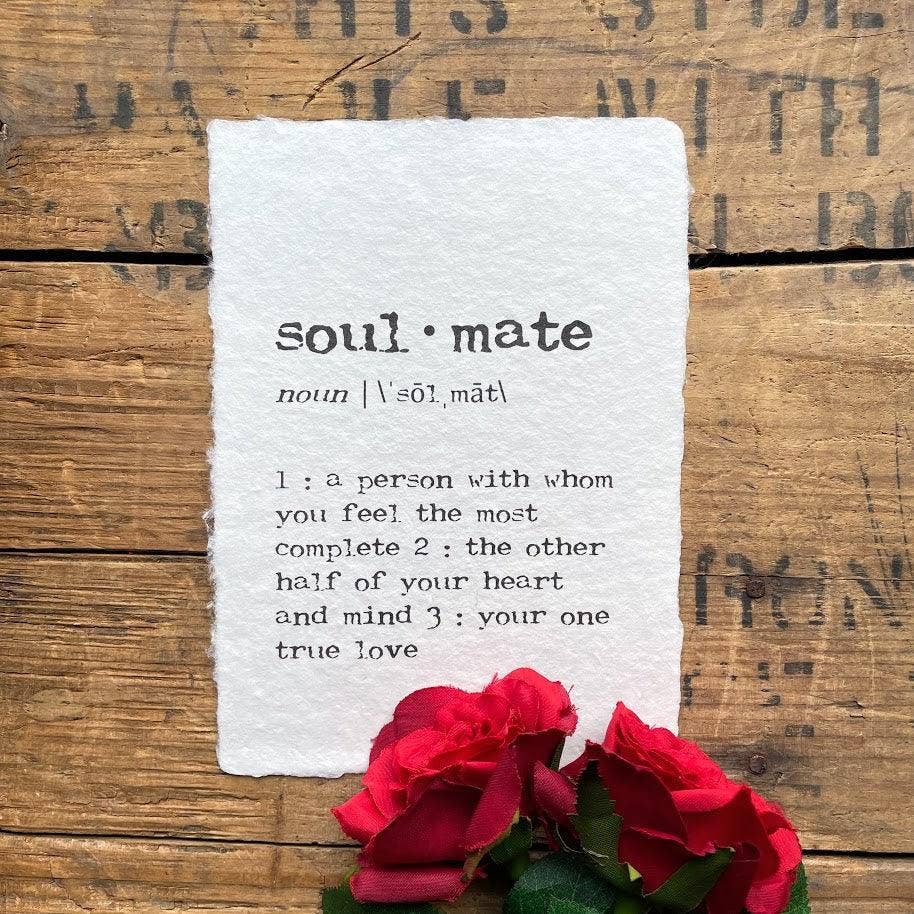 WITH
soul·mate
noun | \ˈsōlˌmāt\
1 : a person with whom
you feel the most
complete 2 : the other
half of your heart
and mind 3 : your one
true love